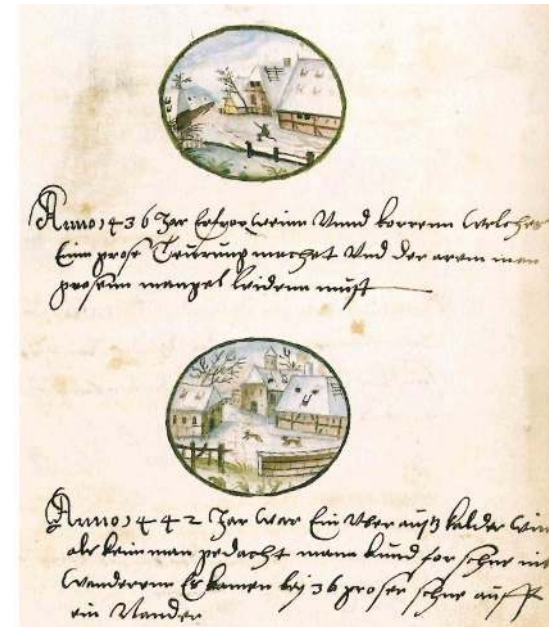 Anno 1436 Jar Erfror weinn Vnnd korrenn welches
Einn grose Teurung machet Vnd der arem man
grosenn mangel leidenn must
Anno 1442 Jar war Ein Vber auß kalder win
als kein man gedacht mann kund for schne nit
wanderenn Es kamen bej 36 groser schne auff
ein Nander